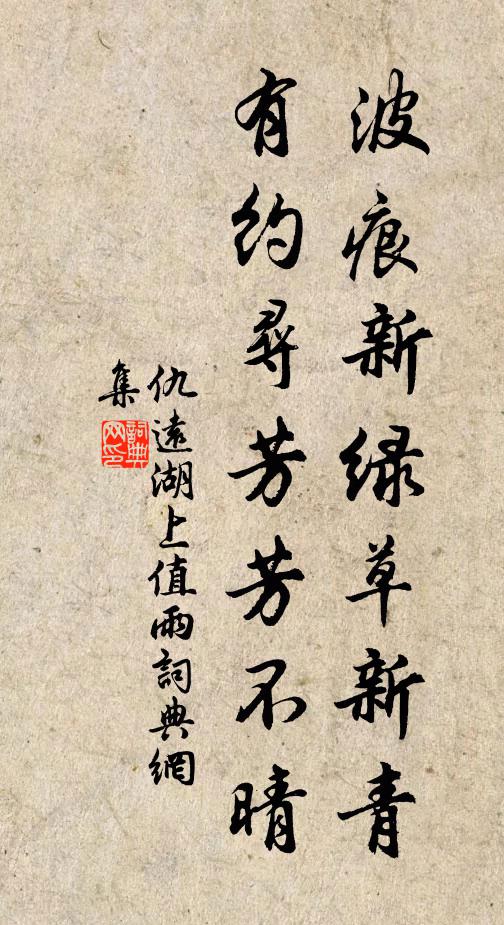 波痕新绿草新青
有约寻芳芳不晴
仇遠湖上值雨詞典網
集
詞典网印